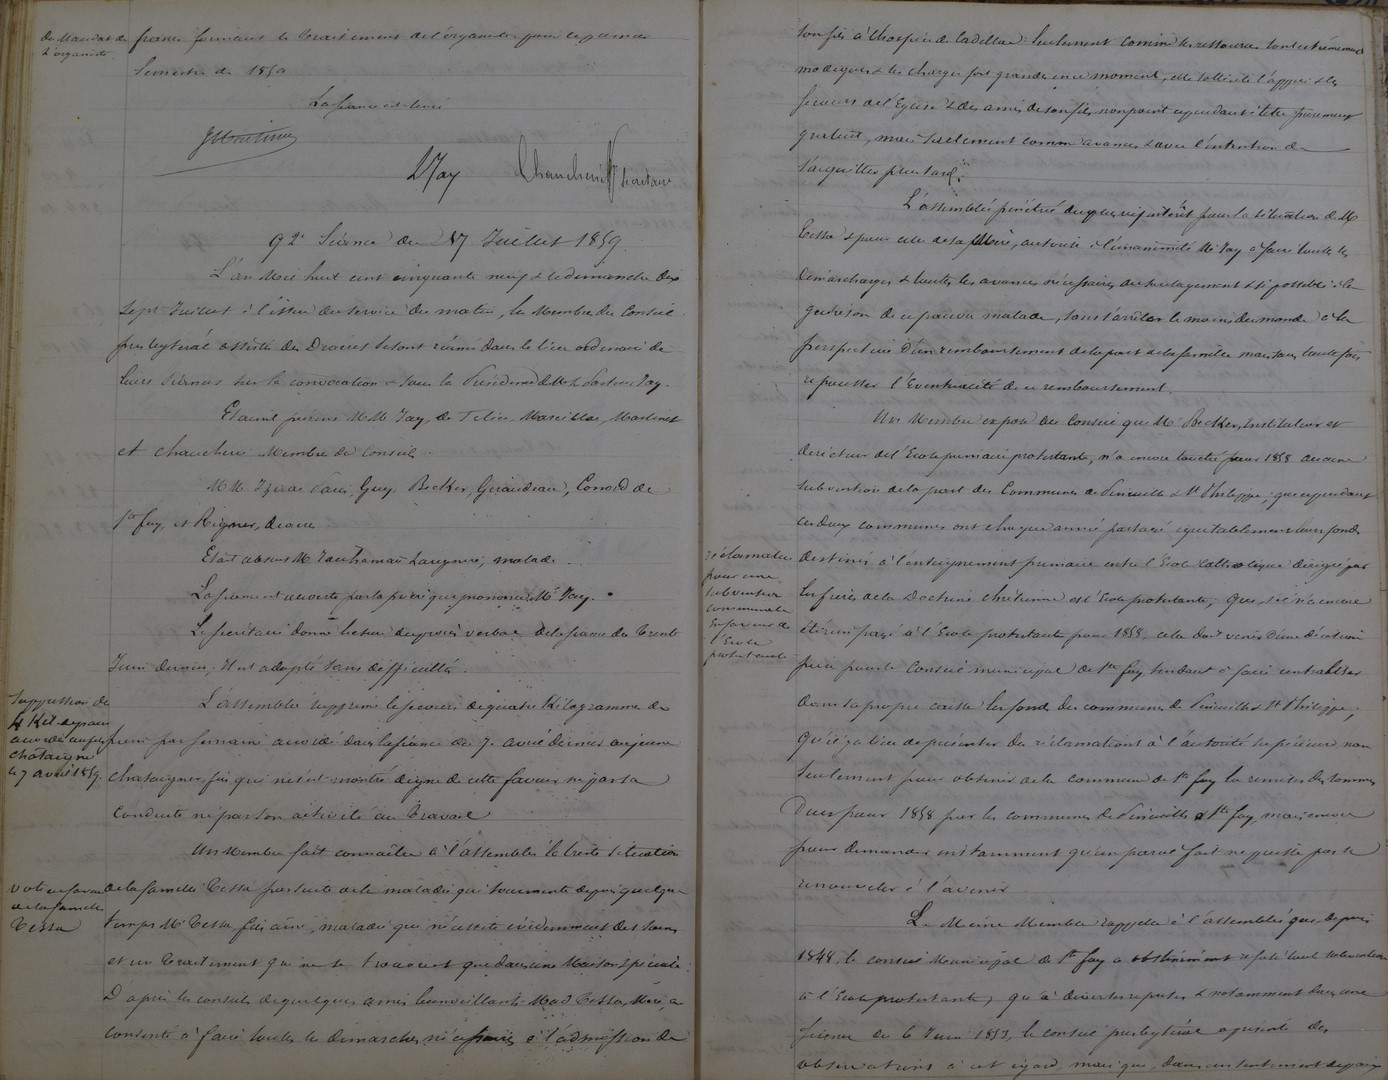 du Mandat de
l'organiste
francs formant le traitement de l'organiste pour le premier
Semestre de 1859
La séance est levée
Jay Chaucherie Secrétaire
92e Séance du 17 Juillet 1859
L'an Mil huit cent cinquante neuf & le dimanche dix
Sept Juillet à l'issue du service du matin, les Membres du Conseil
presbytéral assistés des Diacres se sont réunis dans le lieu ordinaire de
leurs Séances sur la convocation & sous la Présidence de Mr le Pasteur Jay.
Etaient présens MM Jay, de Marcillac, Martinet
et Chaucherie Membres du Conseil.
MM Guy, Becker, Giraudeau,
Ste foy, et Rigner, diacres
Etait absent M malade.
La séance est ouverte par la prière que prononce Mr Jay.
Le secrétaire donne lecture du procès verbal de la séance du Trente
Juin dernier, il est adopté sans difficulté.
Suppression de
4 Kil. de pain
accordé au fils
châtaigné
le 7 avril 1859.
L'assemblée supprime le secours de quatre Kilogrammes de
pain par semaine accordé dans la séance du 7 avril dernier au jeune
chataigner, fils qui ne s'est montré digne de cette faveur ni par sa
conduite ni par son activité au Travail
Un Membre fait connaître à l'assemblée la triste situation
vote en faveur
de la famille
Tessa
de la famille Tessa par suite de la maladie qui tourmente depuis quelque
temps Mr Tessa fils ainé, maladie qui nécessite évidemment des soins
et un Traitement qui ne se trouvent que dans une Maison spéciale
D'après les conseils de quelques amis bienveillants Mad. Tessa, Mère, a
consenti à faire toutes les démarches nécessaires à l'admission de
son fils à l'hospice de Cadillac. Seulement comme les ressources sont extrêmement
modiques & les charges fort grandes en ce moment, elle sollicite l'appui & les
secours de l'Eglise & des amis de son fils, non point cependant à titre purement
gratuit, mais seulement comme avances & avec l'intention de
s'acquitter plus tard.
L'assemblée pénétrée du plus vif intérêt pour la situation de Mr
Tessa & pour celle de sa Mère, autorise à l'unanimité Mr Jay à faire toutes les
démarches & toutes les avances nécessaires au soulagement & si possible à la
guérison de ce pauvre malade, sans s'arrêter le moins du monde à la
perspective d'un remboursement de la part de la famille mais sans toutefois
repousser l'éventualité de ce remboursement.
Un Membre expose au Conseil que Mr Becker, Instituteur et
directeur de l'Ecole primaire protestante, n'a encore touché pour 1858 aucune
subvention de la part des Communes de Pineuilh & St Philippe; que cependant
ces deux communes ont chaque année partagé équitablement leurs fonds
réclamation
pour une
subvention
communale
en faveur de
l'Ecole
protestante
destinés à l'enseignement primaire entre l'Ecole Catholique dirigée par
les frères de la Doctrine chrétienne et l'Ecole protestante; que, s'il n'a encore
été rien payé à l'Ecole protestante pour 1858, cela doit venir d'une décision
prise par le Conseil municipal de Ste foy tendant à faire centraliser
dans sa propre caisse les fonds des communes de Pineuilh & St Philippe;
qu'il y a lieu de présenter des réclamations à l'autorité supérieure non
seulement pour obtenir de la commune de Ste foy la remise des sommes
dues pour 1858 par les communes de Pineuilh & Ste foy, mais encore
pour demander instamment qu'un pareil fait ne puisse pas se
renouveler à l'avenir
Le Même Membre rappelle à l'assemblée que depuis
1848, le conseil Municipal de Ste foy a obstinément refusé toute subvention
à l'Ecole protestante, qu'à diverses reprises & notamment dans une
séance du 6 Juin 1853, le conseil presbytéral a présenté des
observations à cet égard, mais que, dans un sentiment de paix